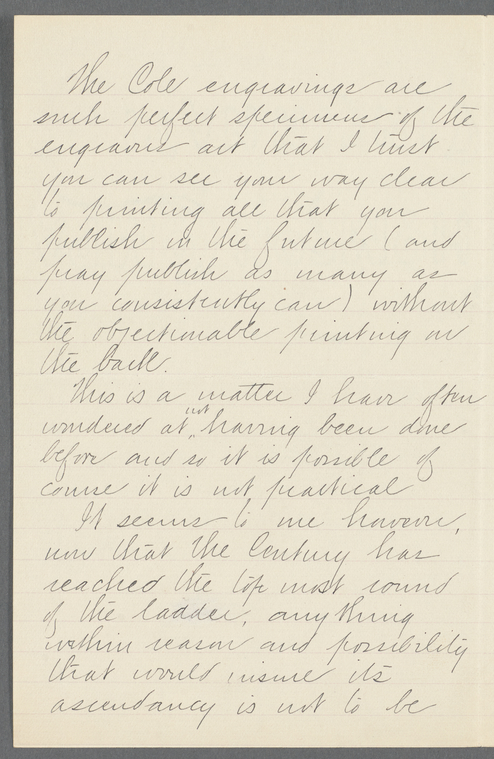 The Cole engravings are
such perfect specimens of the
engravers art that I trust
you can see your way clear
to printing all that you
publish in the future (and
pray publish as many as
you consistently can) without
the objectionable printing on
the back.
This is a matter I have often
wondered at not having been done
before and so it is possible of
course it is not practical
It seems to me however,
now that the Century has
reached the top most round
of the ladder, anything
within reason and possibility
that would insure its
ascendancy is not to be